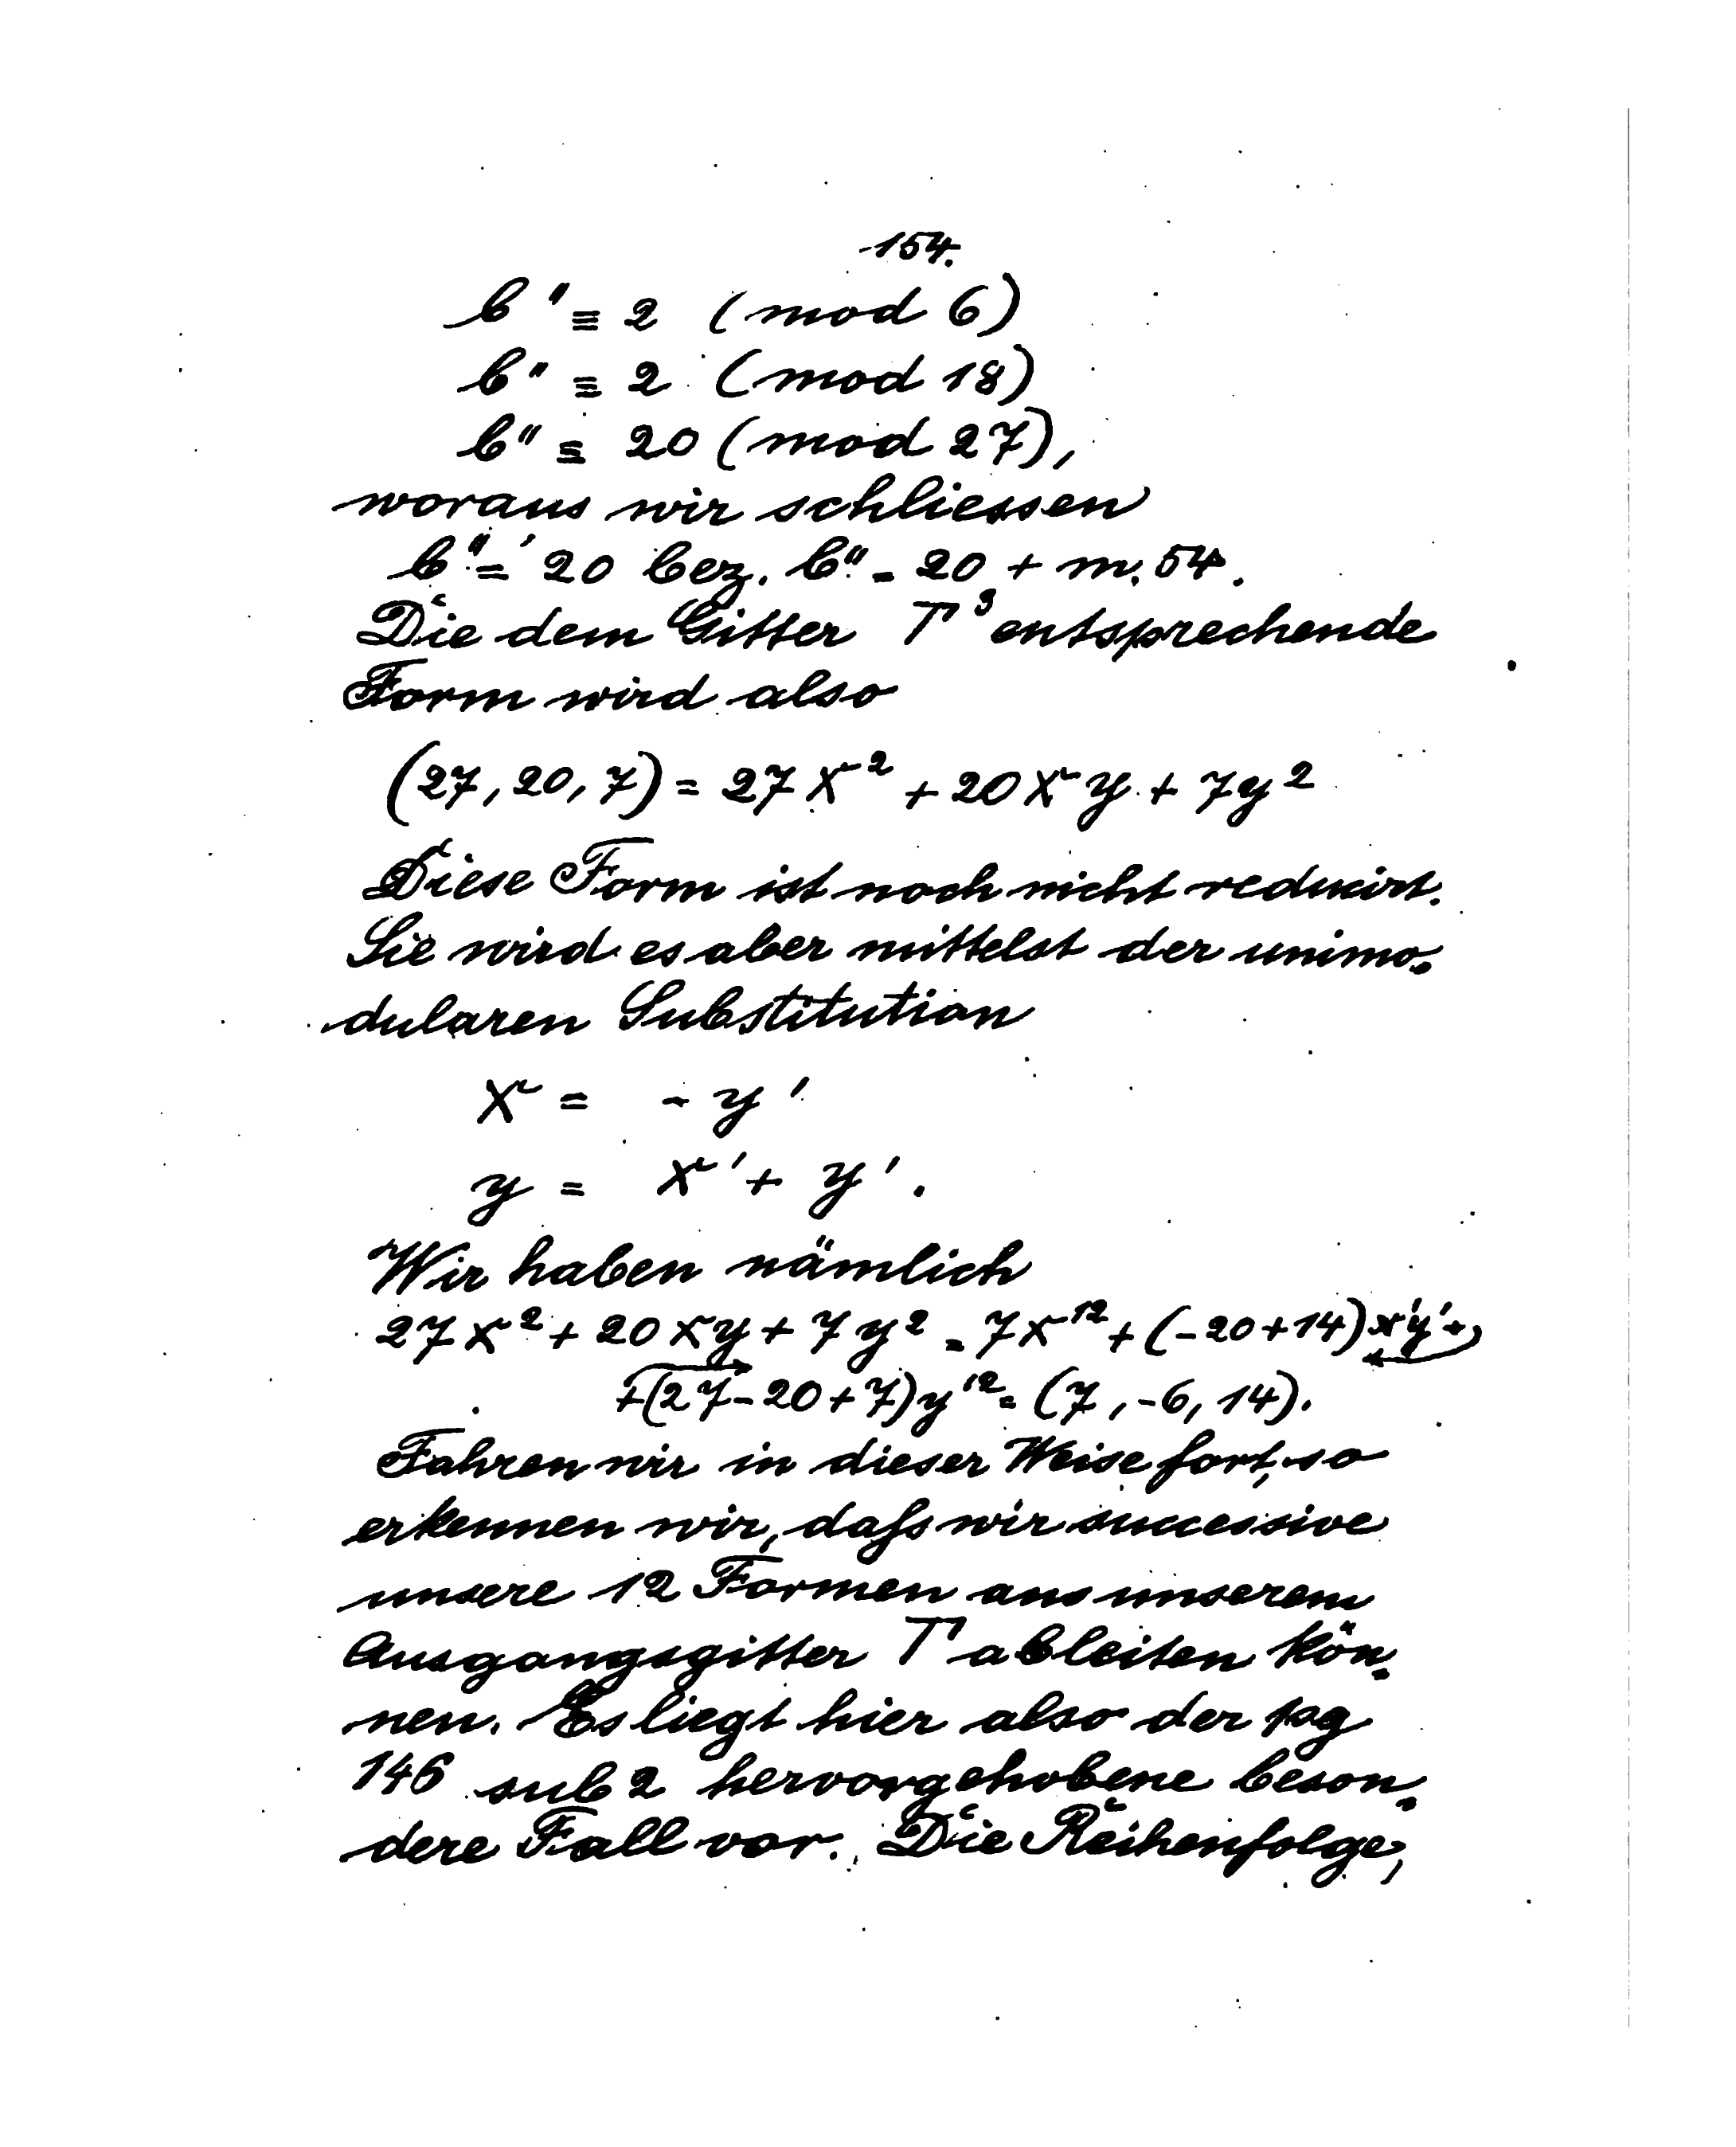 154.
b'' ≡ 2 (mod 6)
b'' ≡ 2 (mod 18)
b'' ≡ 20 (mod 27),
woraus wir schliessen
b'' = 20 bez. b'' = 20 + m. 54.
Die dem Gitter T³ entsprechende
Form wird also
(27, 20, 7) = 27x² + 20xy + 7y²
Diese Form ist noch nicht reducirt.
Sie wird es aber mittelst der unimo-
dularen Substitution
x = - y'
y = x' + y'.
Wir haben nämlich
27x² + 20xy + 7y² = 7x'² + (-20+14)x'y' +
+(27-20+7)y'² = (7, -6, 14).
Fahren wir in dieser Weise fort, so
erkennen wir, dafs wir successive
unsere 12 Formen aus unserem
Ausgangsgitter T ableiten kön-
nen. Es liegt hier also der pag
146 sub 2 hervorgehobene beson-
dere Fall vor. Die Reihenfolge,